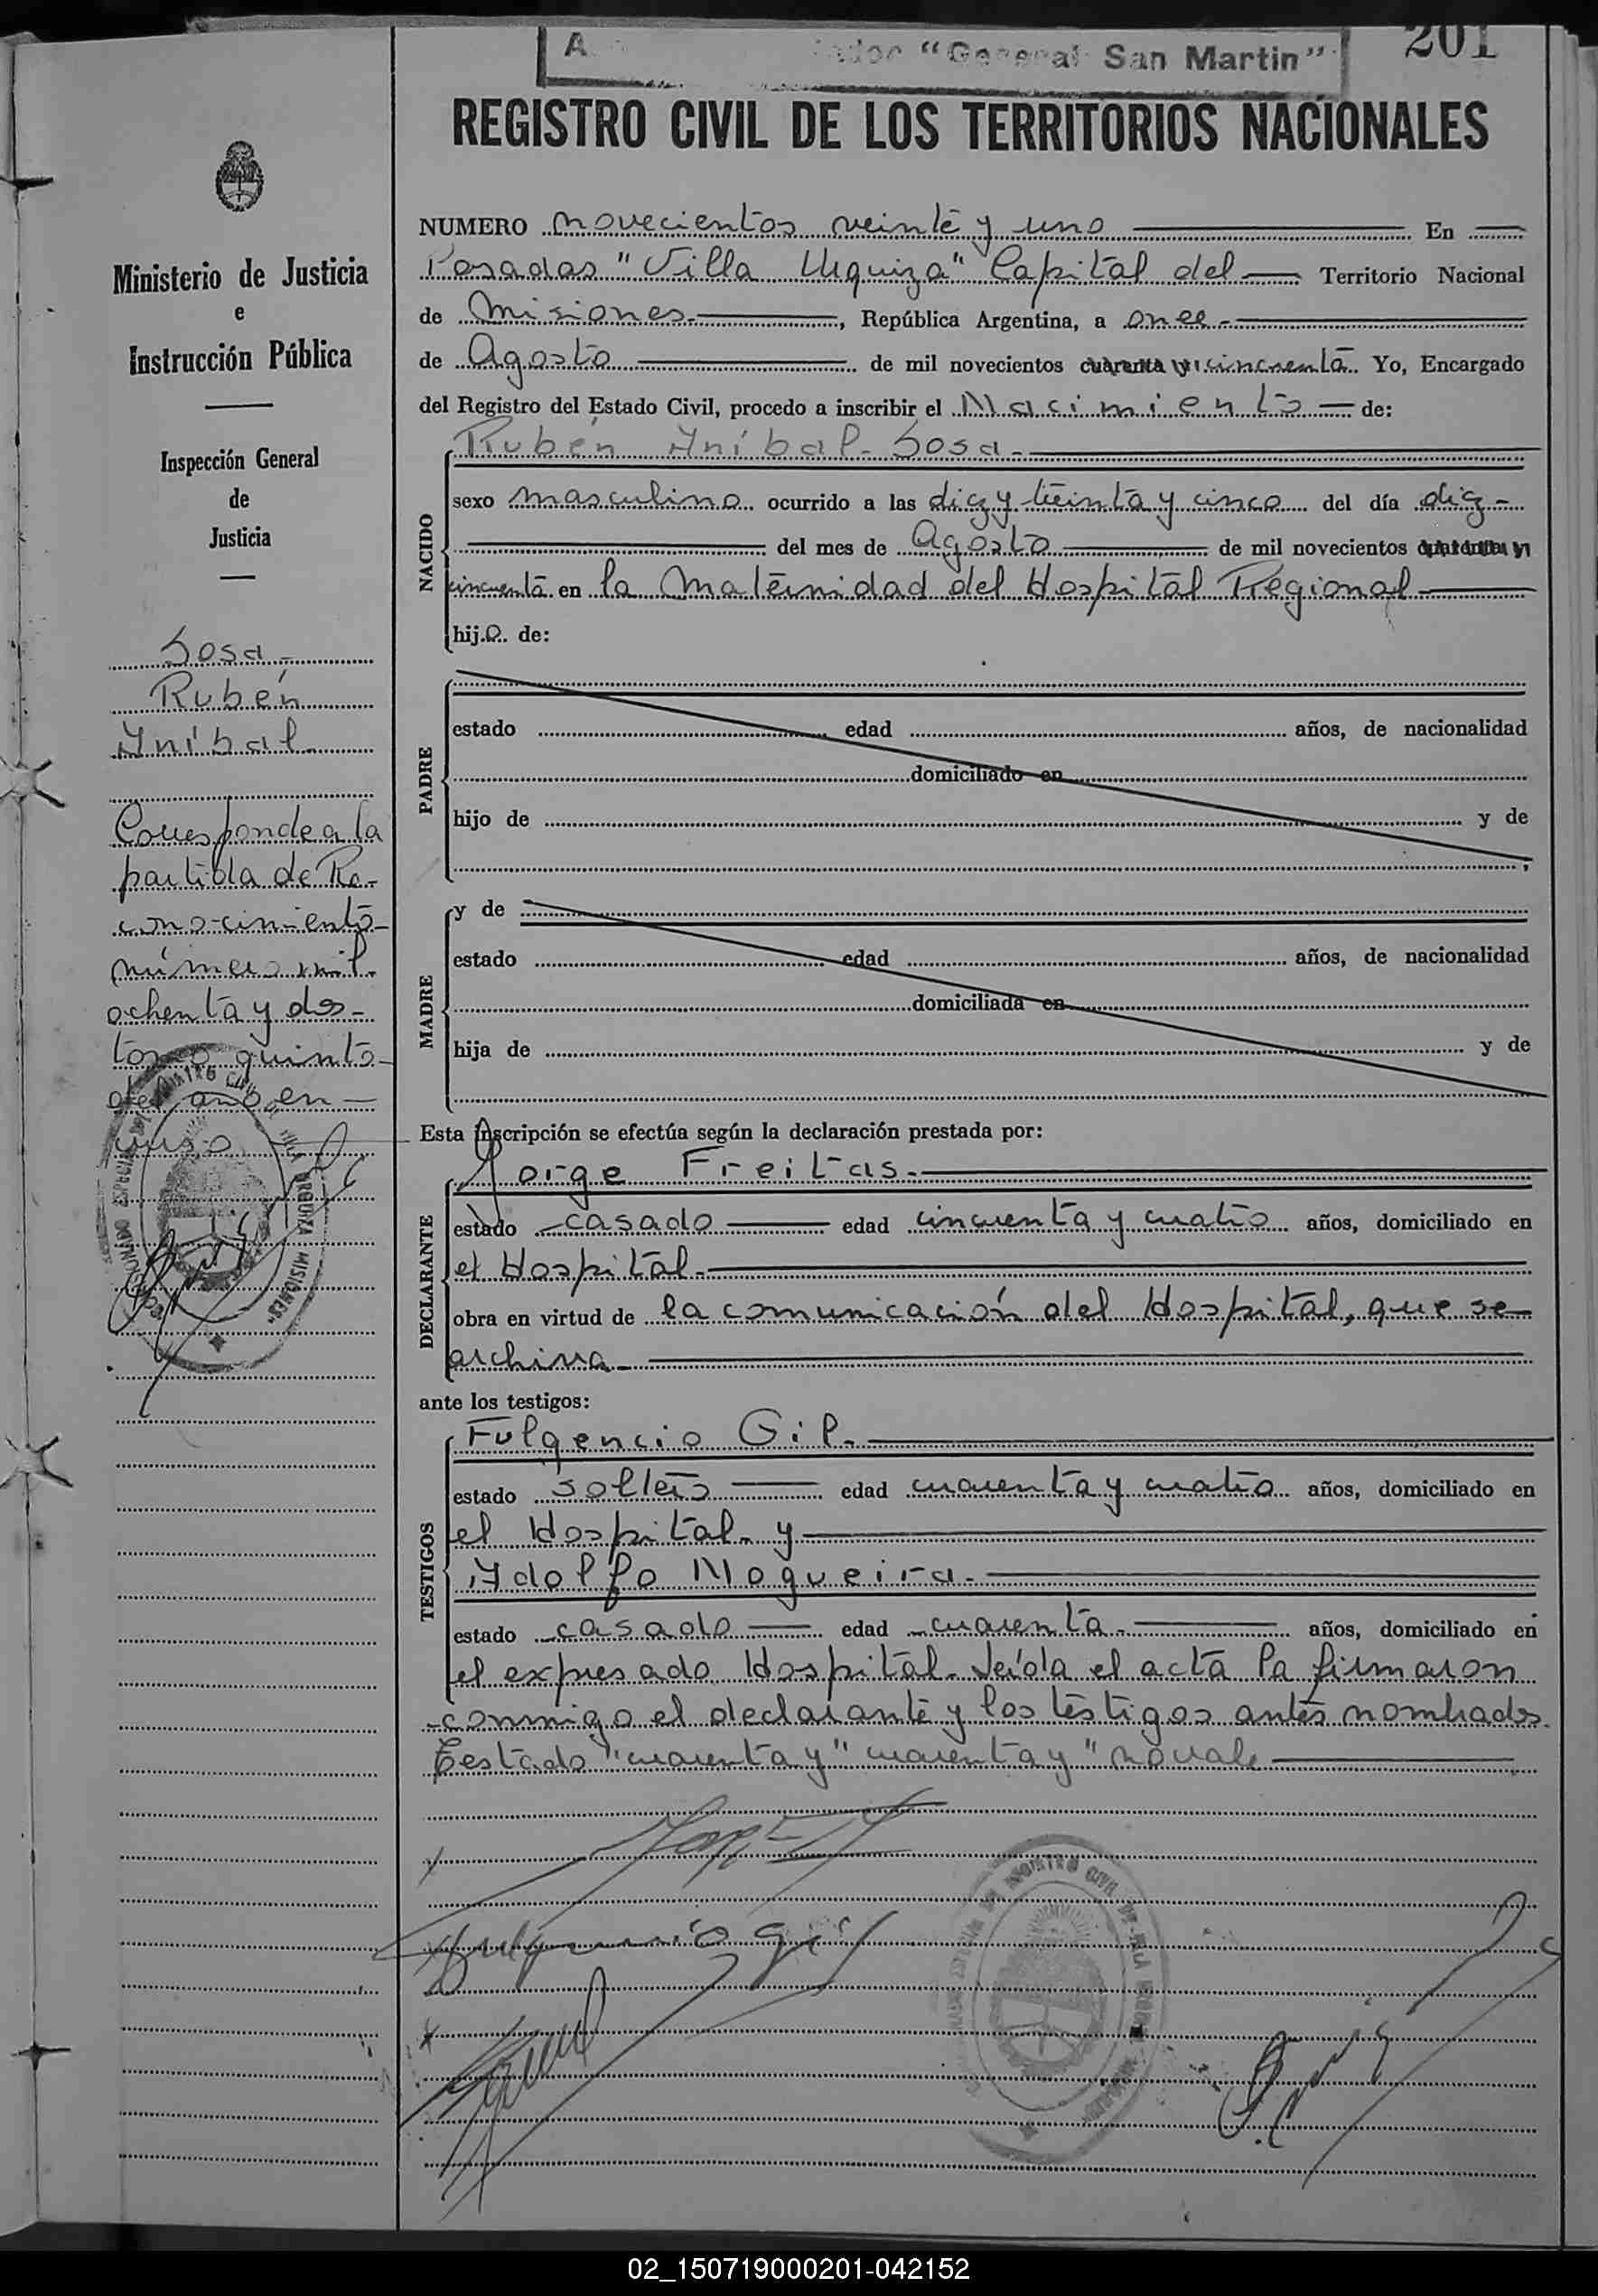 "General San Martin"
201
REGISTRO CIVIL DE LOS TERRITORIOS NACIONALES
Ministerio de Justicia
e
Instrucción Pública
Inspección General
de
Justicia
Sosa-
Rubén
Aníbal.
Corresponde a la
partida de Re-
conocimiento-
número mil
ochenta y dos-
tomo quinto-
del año en —
curso
NUMERO novecientos veinte y uno En
Posadas "Villa Urquiza" Capital del Territorio Nacional
de Misiones.-, República Argentina, a once.-
de Agosto de mil novecientos cuarenta y cincuenta. Yo, Encargado
del Registro del Estado Civil, procedo a inscribir el Nacimiento de:
NACIDO
Rubén Aníbal Sosa.-
sexo masculino ocurrido a las diez y treinta y cinco del día diez-
del mes de Agosto de mil novecientos cuarenta y
cincuenta en la Maternidad del Hospital Regional
hijo de:
PADRE
estado edad años, de nacionalidad
domiciliado en
hijo de y de
MADRE
y de
estado edad años, de nacionalidad
domiciliada en
hija de y de
Esta inscripción se efectúa según la declaración prestada por:
DECLARANTE
Jorge Freitas.-
estado casado edad cincuenta y cuatro años, domiciliado en
el Hospital.-
obra en virtud de la comunicación del Hospital, que se
archiva-
ante los testigos:
TESTIGOS
Fulgencio Gil.
estado soltero edad cuarenta y cuatro años, domiciliado en
el Hospital. y
Adolfo Nogueira.-
estado casado edad cuarenta.- años, domiciliado en
el expresado Hospital. Leída el acta la firmaron
conmigo el declarante y los testigos antes nombrados.
Testado "cuarenta y" cuarenta y" no vale
Fulgencio Gil
02_150719000201-042152